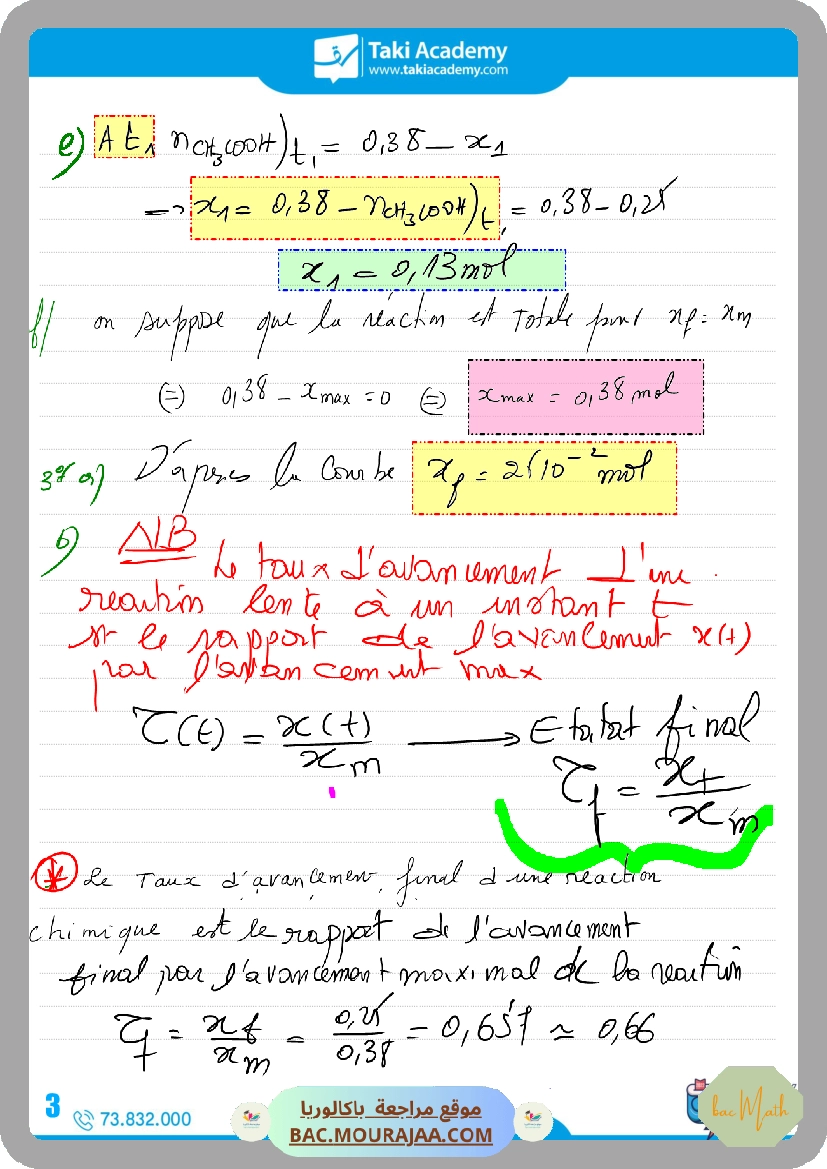 Taki Academy
www.takiacademy.com
e) A t1 nCH3COOH)t1 = 0,38 - x1
→ x1 = 0,38 - nCH3COOH)t1 = 0,38 - 0,25
x1 = 0,13 mol
f/ on suppose que la réaction est Totale pour xf = xm
(=) 0,38 - xmax = 0 (=) xmax = 0,38 mol
3°/ a) D'apres la Courbe xf = 25 10⁻² mol
b) NB Le taux d'avancement d'une
reaction lente à un instant t
st le rapport de l'avancement x(t)
par l'avancement max
τ(t) = x(t)/xm → Etatat final
τf = xf/xm
* Le Taux d'avancement final d'une reaction
chimique est le rapport de l'avancement
final par l'avancement maximal de la reaction
τf = xf/xm = 0,25/0,38 = 0,657 ≃ 0,66
3
73.832.000
موقع مراجعة باكالوريا
BAC.MOURAJAA.COM
bac Math